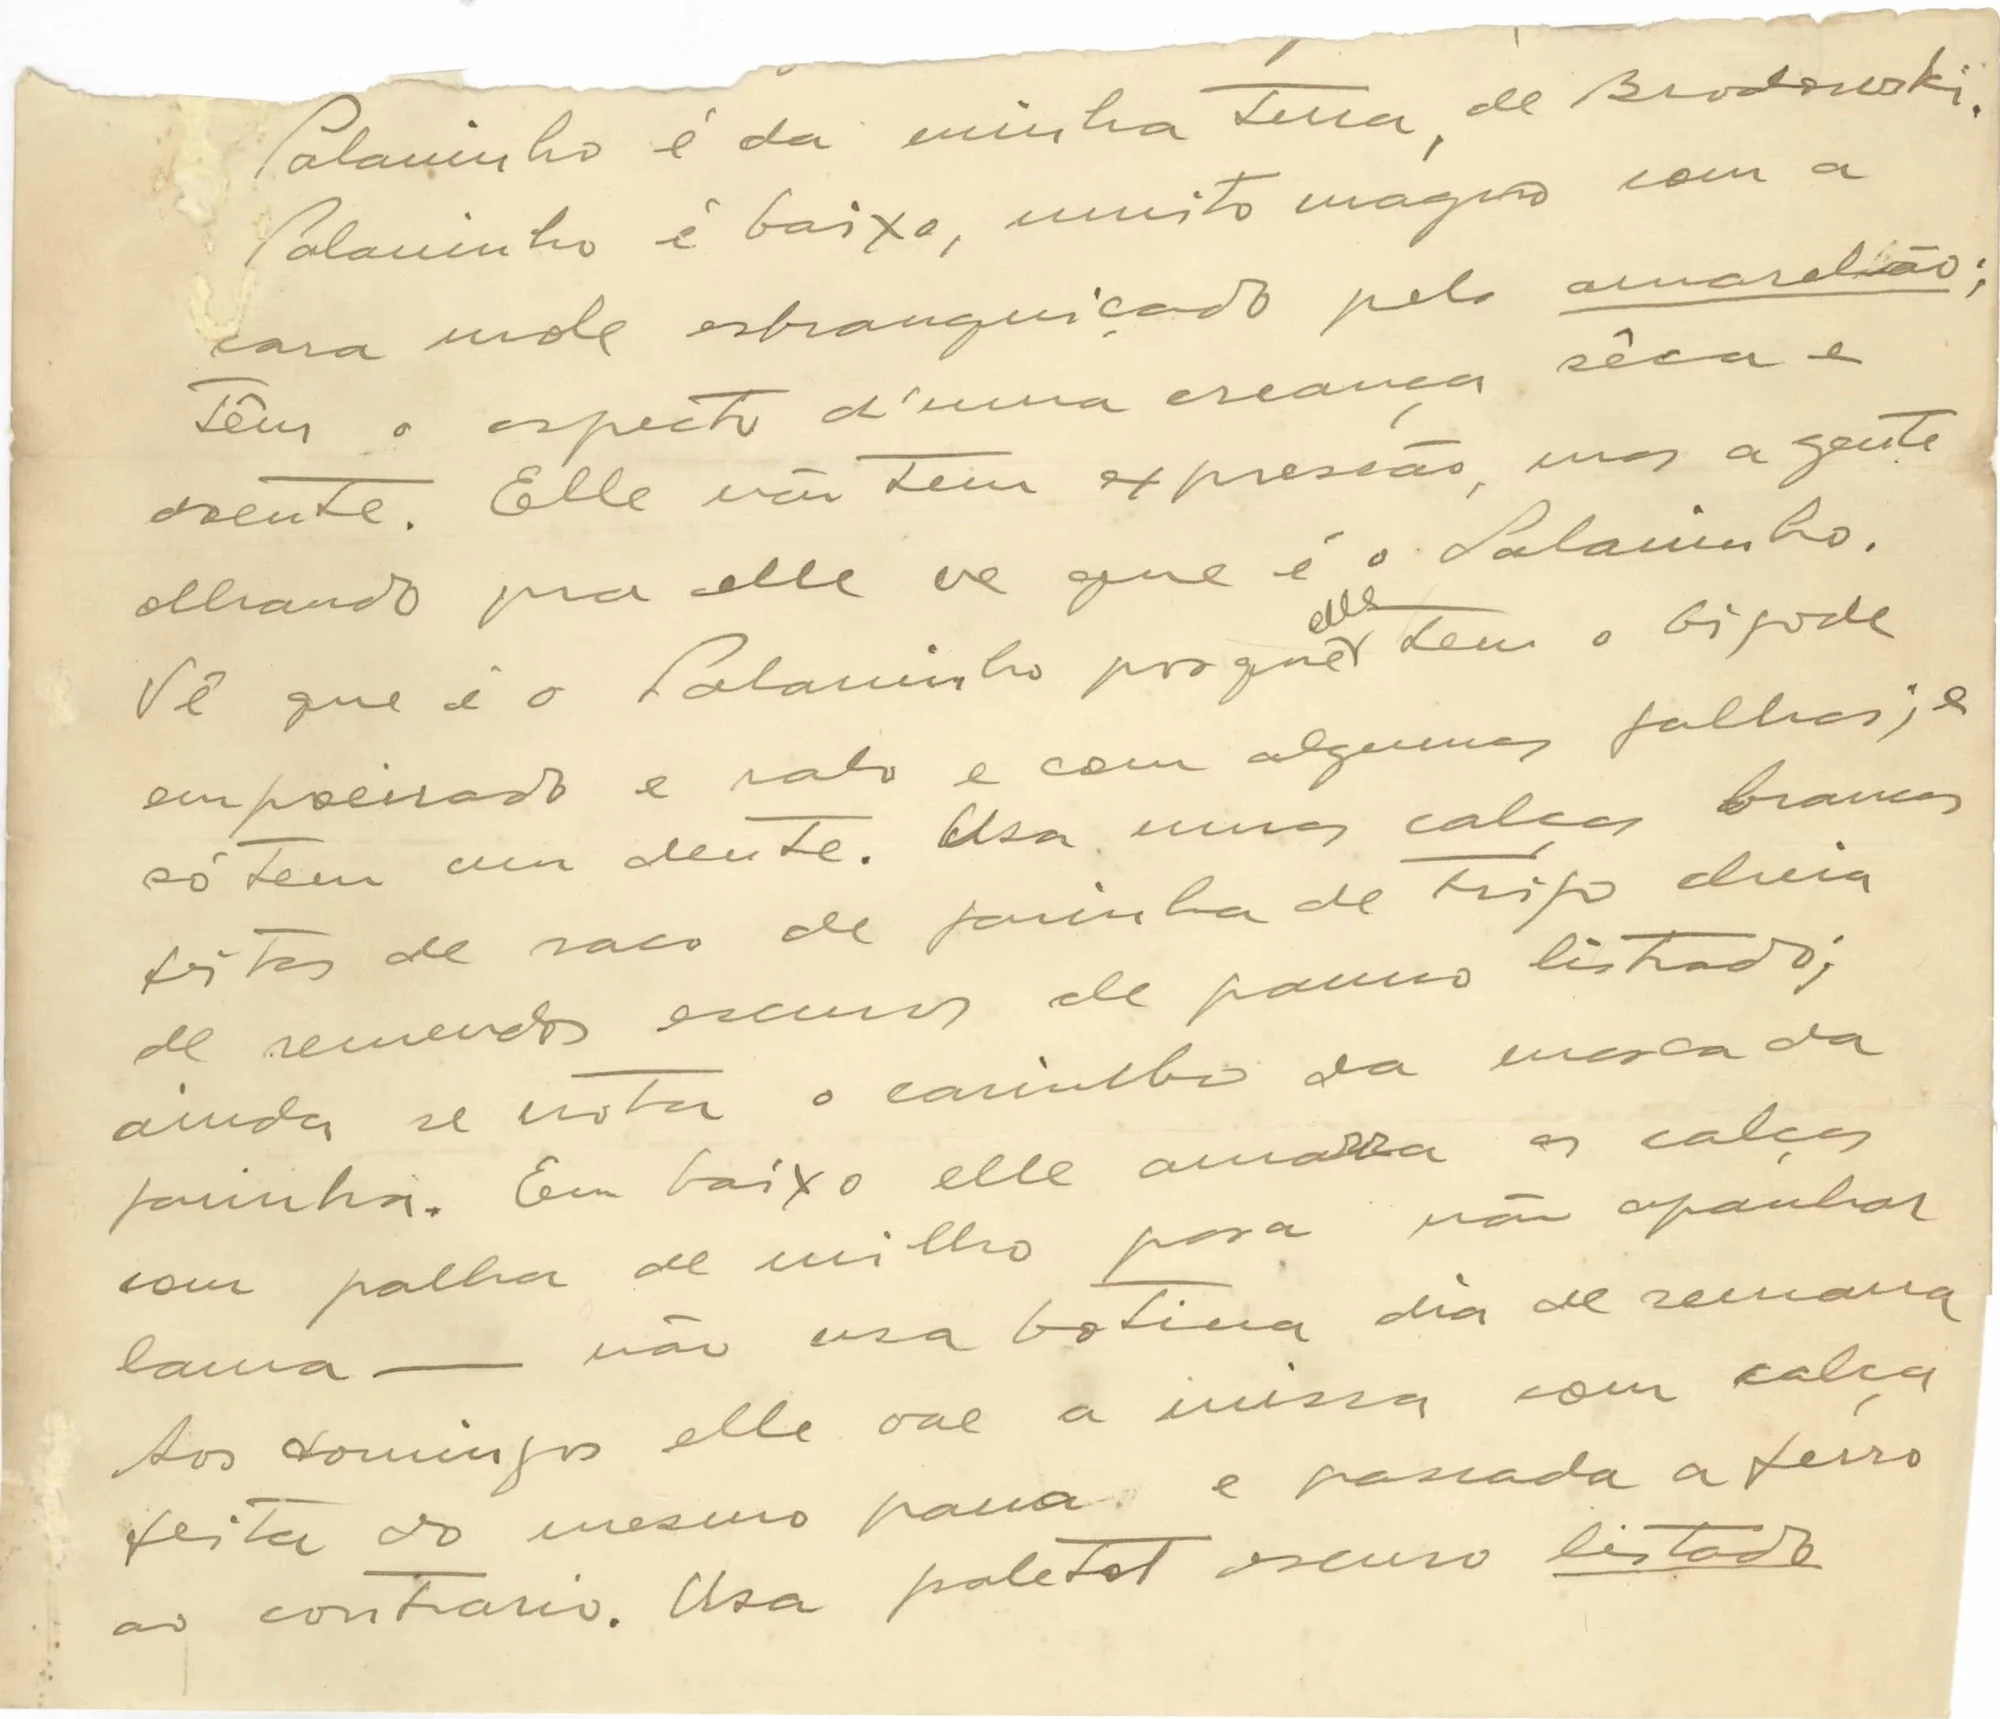 Palaninho é da minha terra, de Brodowski.
Palaninho é baixo, muito magro com a
cara mole esbranquiçado pelo amarelão;
têm o aspecto d'uma creança sêca e
doente. Elle não tem expressão, mas a gente
olhando pra elle ve que é o Palaninho.
Vê que é o Palaninho porque elle tem o bigode
empoeirado e ralo e com algumas falhas; e
só tem um dente. Usa umas calças brancas
feitas de saco de farinha de trigo cheia
de remendos escuros de panno listrado;
ainda se nota o carimbo da marca da
farinha. Em baixo elle amarra as calças
com palha de milho para não apanhar
lama — não usa botina dia de semana
Aos domingos elle vae a missa com calça
feita do mesmo panno e passada a ferro
ao contrario. Usa paletot escuro listado